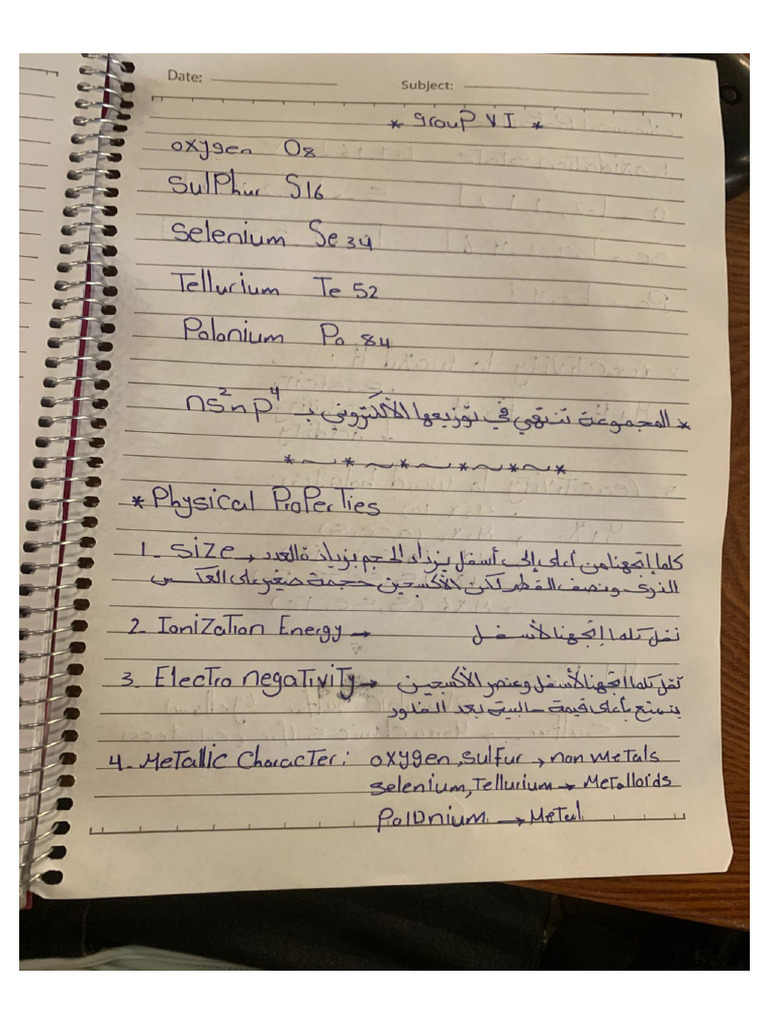 Date: Subject:
* Group VI *
oxygen O8
Sulphur S16
Selenium Se 34
Tellurium Te 52
Polonium Po 84
* المجموعة تنتهي في توزيعها الألكتروني بـ ns²np⁴
*~*~*~*~*~*
* Physical Properties
1. Size → كلما إتجهنا من أعلى إلى أسفل يزداد الحجم بزيادة العدد
الذري ونصف القطر لكن الأكسجين حجمة صغير على العكس
2. Ionization Energy → تقل كلما إتجهنا لأسفل
3. Electro negativity → تقل كلما اتجهنا لأسفل وعنصر الأكسجين
يتمتع بأعلى قيمة سالبية بعد الفلور
4. Metallic Character: oxygen, sulfur → non metals
selenium, Tellurium → Metalloids
Polonium → Metal